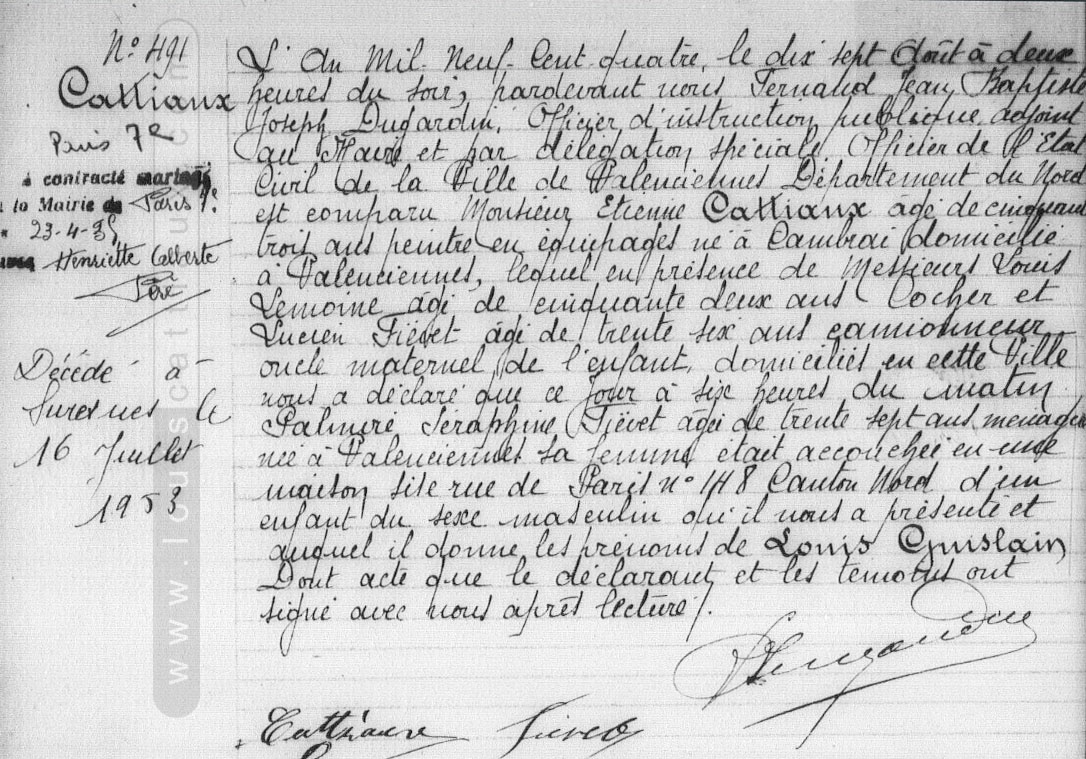 N° 491
Cattiaux
Paris 7e
a contracté mariage
la Mairie de Paris 7e
23-4-35
Henriette Alberte
Péré
Décédé à
Suresnes le
16 Juillet
1953
L'An Mil-Neuf-Cent-quatre, le dix sept Août à deux
heures du soir, pardevant nous Fernand Jean Baptiste
Joseph Dugardin, Officier d'instruction publique, adjoint
au Maire et par délégation spéciale Officier de l'Etat
Civil de la Ville de Valenciennes Département du Nord
est comparu Monsieur Etienne Cattiaux agé de cinquante
trois ans peintre en équipages né à Cambrai domicilié
à Valenciennes, lequel en présence de Messieurs Louis
Lemoine agé de cinquante deux ans Cocher et
Lucien Fiévet âgé de trente six ans camionneur
oncle maternel de l'enfant, domiciliés en cette Ville
nous a déclaré que ce jour à six heures du matin
Palmyre Séraphine Fiévet âgée de trente sept ans ménagère
née à Valenciennes sa femme était accouchée en une
maison sise rue de Paris n° 148 Canton Nord d'un
enfant du sexe masculin qu'il nous a présenté et
auquel il donne les prénoms de Louis Guislain
Dont acte que le déclarant et les témoins ont
signé avec nous après lecture /.
Cattiaux Fievet